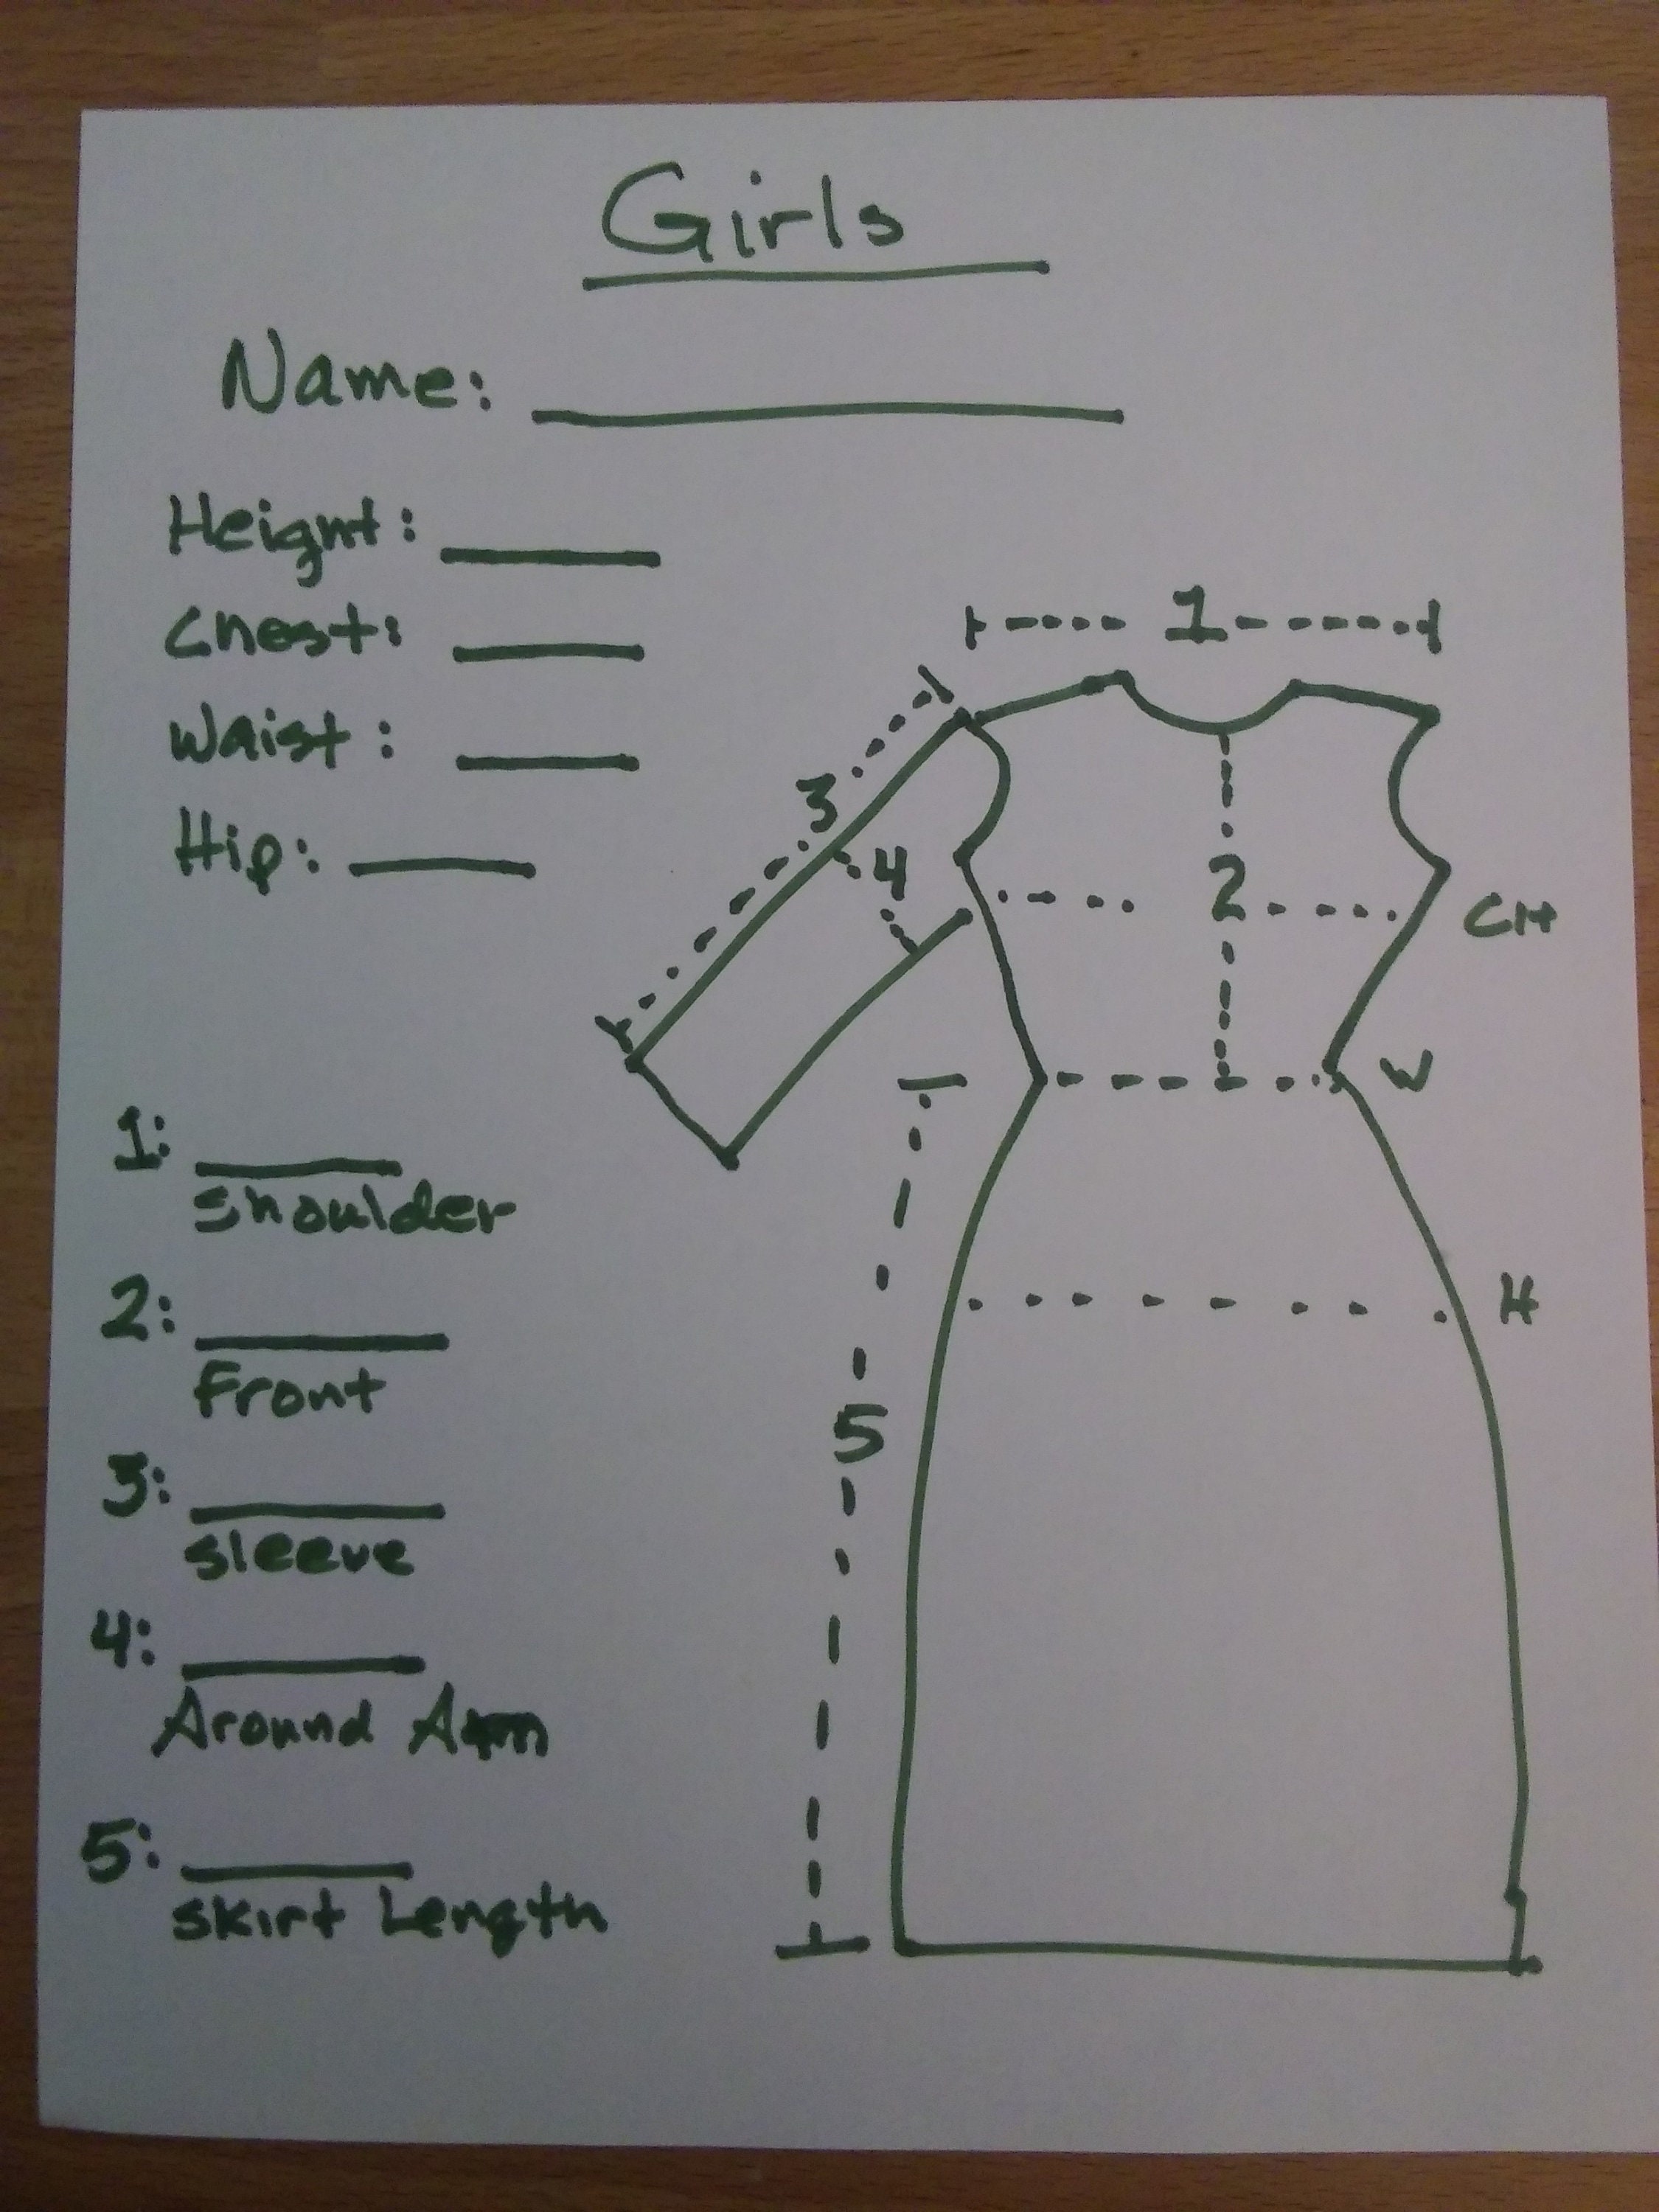 Girls
Name:
Height:
Chest:
Waist:
Hip:
1:
shoulder
2:
Front
3:
sleeve
4:
Around Arm
5:
skirt Length
1
3
4
2
CH
W
H
5